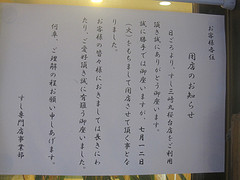 お客様各位
閉店のお知らせ
日ごろより、すし三崎丸桜台店をご利用
頂き誠にありがとう御座います。
誠に勝手では御座いますが、七月一二日
(火)をもちまして閉店させて頂く事とな
りました。
お客様の皆々様におきましては長きにわ
たり、ご愛好頂き誠に有難う御座いました
何卒、ご理解の程お願い申しあげます。
すし専門店事業部